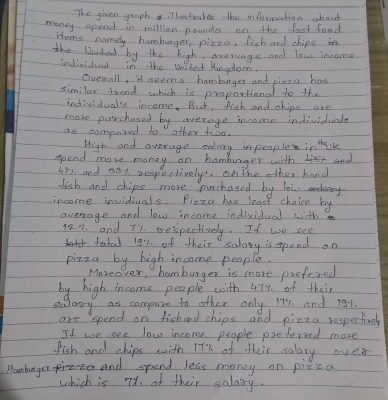 The given graph illustrates the information about
money spend in million pounds on the fast food
items namely hamburger, pizza, fish and chips in
the United by the high, average and low income
individual in the United Kingdom.
Overall, it seems hamburger and pizza has
similar trend which is proportional to the
individual's income. But, fish and chips are
more purchased by average income individuals
as compared to other two.
High and average salary people in the UK
spend more money on hamburger with and
47% and 33% respectively. On the other hand
fish and chips more purchased by low salary
income inviduals. Pizza has least choice by
average and low income individual with
12% and 7% respectively. If we see
total 19% of their salary is spend on
pizza by high income people.
Moreover, hamburger is more preferred
by high income people with 47% of their
salary as compare to other only 17% and 19%
are spend on fish and chips and pizza respectively
If we see low income people preferred more
fish and chips with 17% of their salary over
Hamburger pizza and spend less money on pizza
which is 7% of their salary.